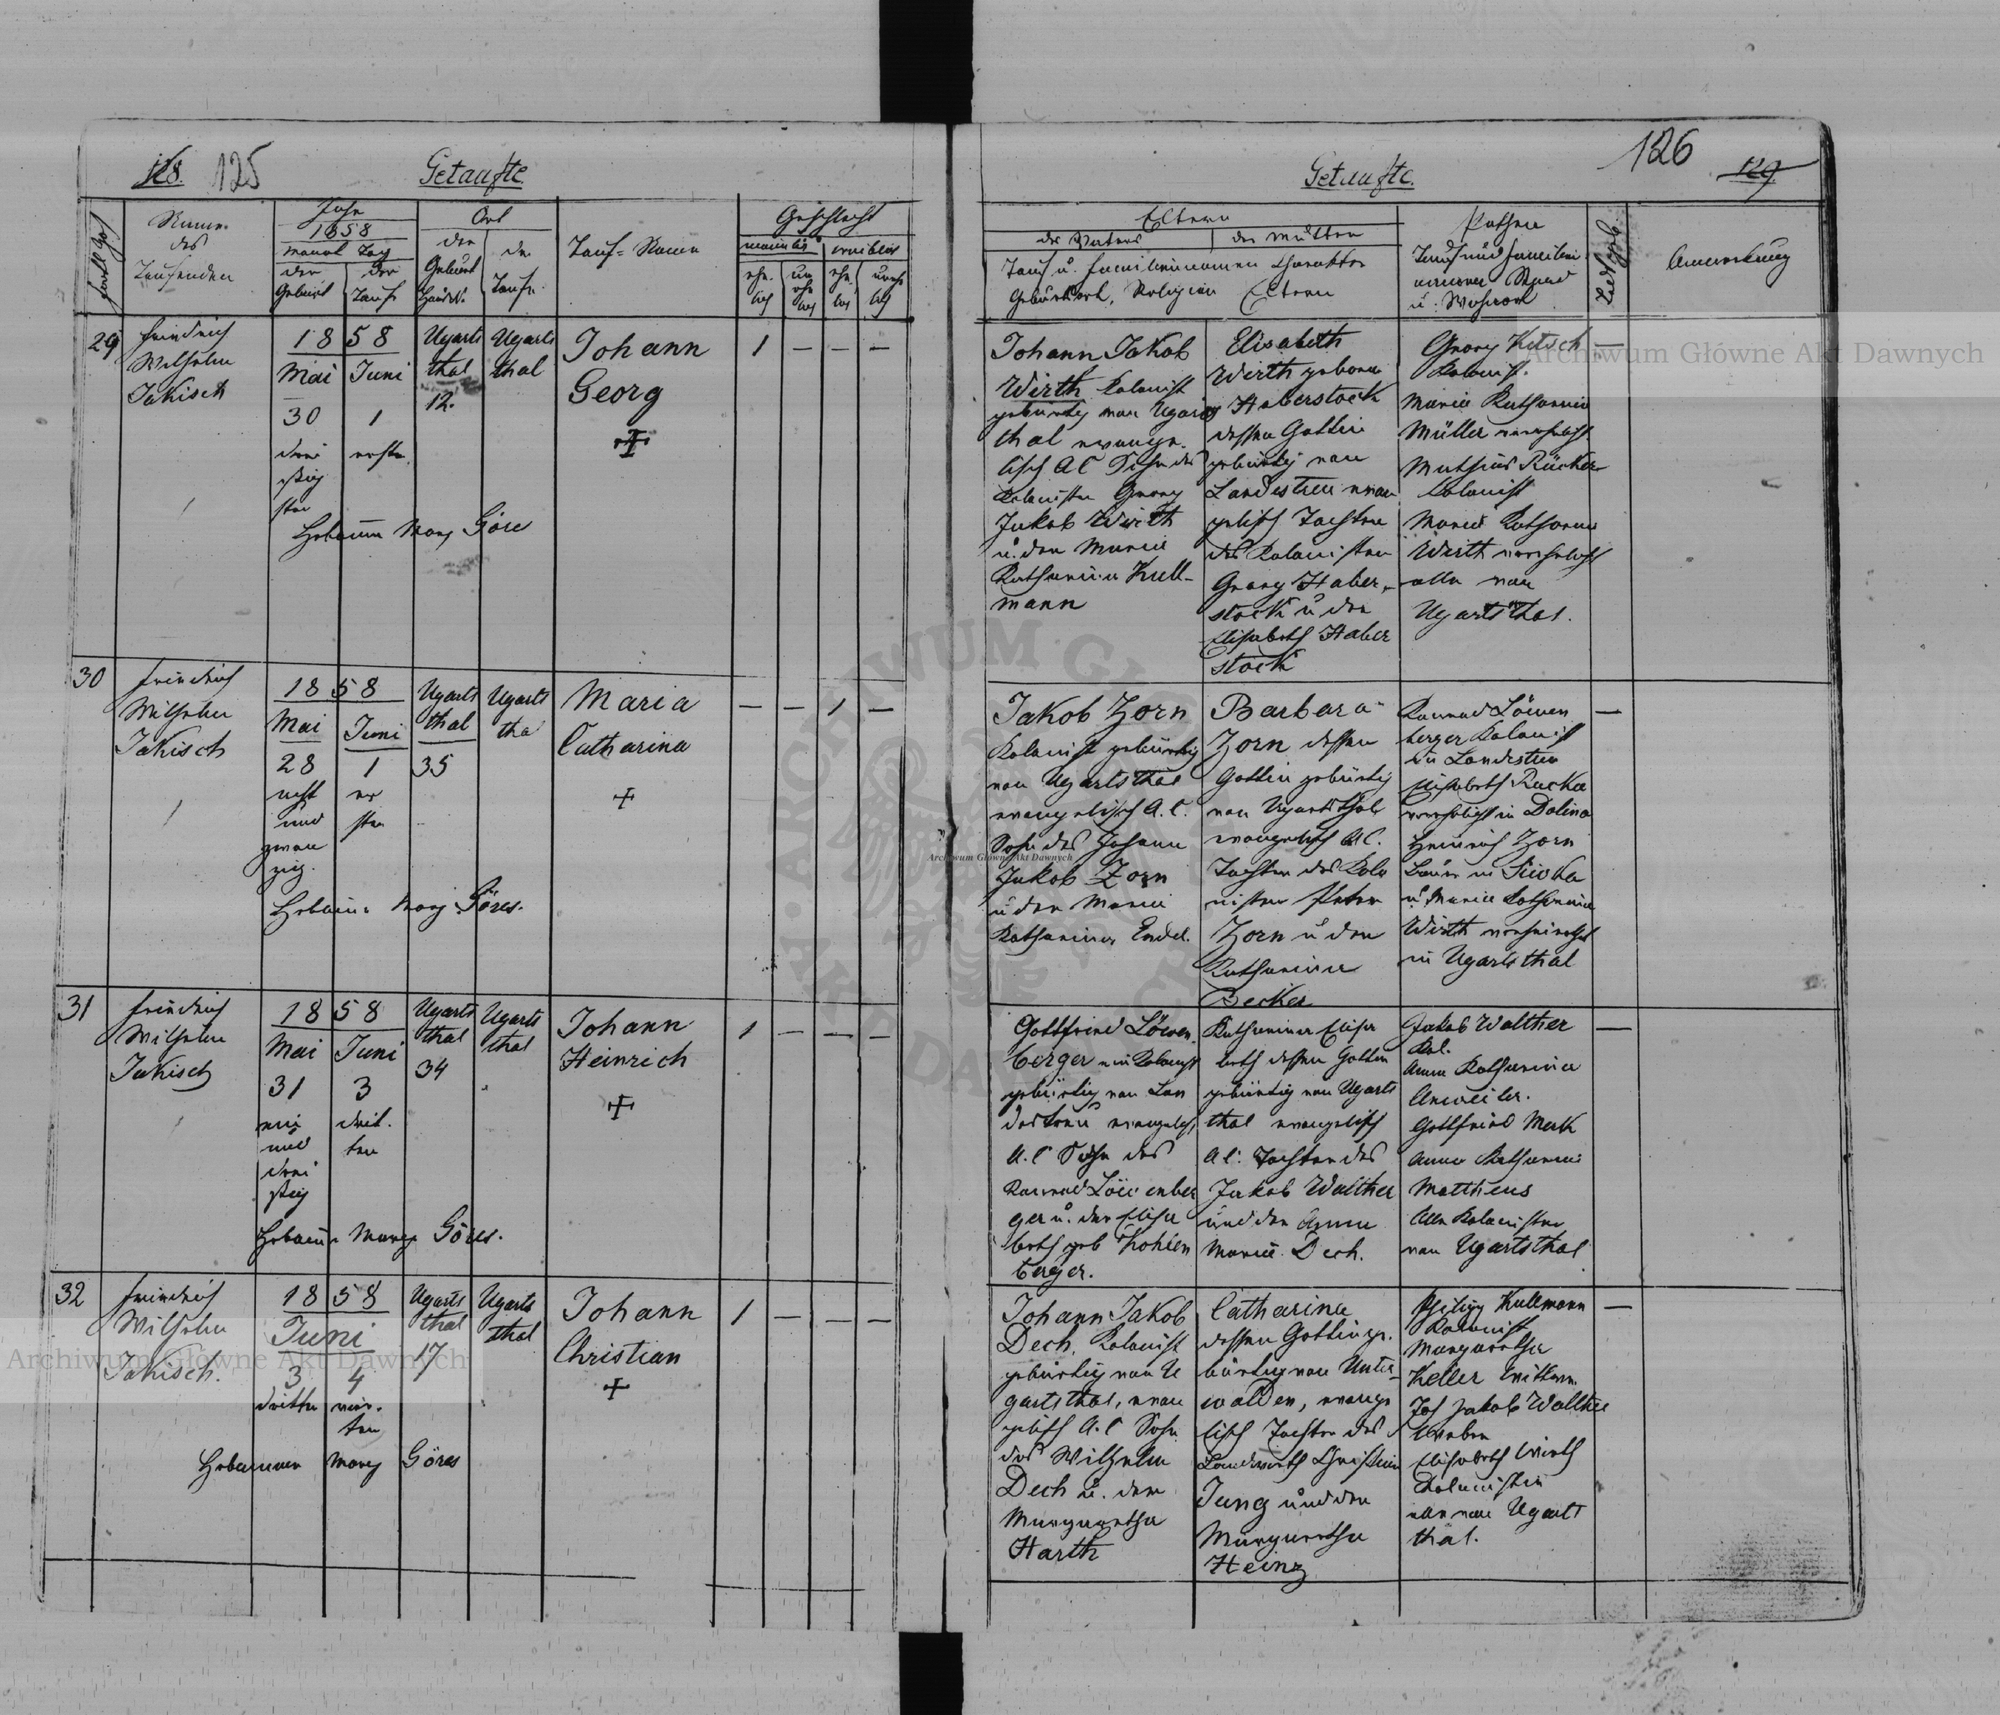 128. 125
Getaufte.
Fortl. No
Name
des
Taufenden
Jahr
1858
Monat Tag
der
Geburt
der
Taufe
Ort
der
Geburt
Haus N.
der
Taufe
Tauf-Name
Geschlecht
männlich
weiblich
ehe-
lich
un
ehe
lich
ehe
lich
unehe
lich
29
Friedrich
Wilhelm
Jakisch
1858
Mai
Juni
30
1
drei
ßig
sten
erste
Ugarts
thal
12.
Ugarts
thal
Johann
Georg
1 — — —
Hebamme Marg Göre
30
Friedrich
Wilhelm
Jakisch
1858
Mai
Juni
28
1
acht
und
zwan
zig.
er
sten
Ugarts
thal
35
Ugarts
tha
Maria
Catharina
— — 1 —
Hebam. Marg. Göres.
31
Friedrich
Wilhelm
Jakisch
1858
Mai
Juni
31
3
ein
und
drei
ßig
drit.
ten
Ugarts
thal
34
Ugarts
thal
Johann
Heinrich
1 — — —
Hebam. Marg. Göres.
32
Friedrich
Wilhelm
Jakisch.
1858
Juni
3
4
dritten
vier-
ten
Ugarts
thal
17
Ugarts
thal
Johann
Christian
1 — — —
Hebammen Marg Göres
126 129
Getaufte.
Eltern
des Vaters
der Mutter
Tauf u. Familiennamen Charakter
Geburtsort, Religion Eltern
Pathen
Tauf und Familien
namen Stand
u. Wohnort
Anmerkung
Johann Jakob
Wirth Kolonist
gebürtig von Ugarts
thal evange.
lisch A C Sohn des
Kolonisten Georg
Jakob Wirth
u. der Maria
Katharina Kull-
mann
Elisabeth
Wirth geborne
Haberstock
dessen Gattin
gebürtig von
Landestreu evan
gelisch Tochter
des Kolonisten
Georg Haber-
stock u der
Elisabeth Haber
stock
Georg Ketsch
Kolonist.
Maria Katharina
Müller verehelicht
Mathias Rücker
Kolonist
Maria Katharina
Wirth verehelicht
alle von
Ugartsthal.
Jakob Zorn
Kolonist gebürtig
von Ugartsthal
evangelisch A. C.
Sohn des Johann
Jakob Zorn
u der Maria
Katharina Endel.
Barbara
Zorn dessen
Gattin gebürtig
von Ugartsthal
evangelisch A C.
Tochter des Kolo
nisten Peter
Zorn u der
Katharina
Becker
Konrad Löwen
berger Kolonist
in Landestreu
Elisabeth Rucka
verehelicht in Dolina
Heinrich Zorn
Bauer in Siwka
u. Maria Katharina
Wirth verheirathet
in Ugartsthal
Gottfried Löwen
berger ein Kolonist
gebürtig von Lan
destreu evangelisch
A. C Sohn des
Konrad Löwenber
ger u. der Elisa
beth geb Kohlen
berger.
Katharina Elisa
beth dessen Gattin
gebürtig von Ugarts
thal evangelisch
A C. Tochter des
Jakob Walther
und der Anna
Maria Dech.
Jakob Walther
Kol.
Anna Katharina
Anweiler.
Gottfried Mark
Anna Katharina
Mattheus
Alle Kolonisten
von Ugartsthal
Johann Jakob
Dech, Kolonist
gebürtig von U
gartsthal, evan
gelisch A. C Sohn
des Wilhelm
Dech u. der
Margaretha
Harth
Catharina
dessen Gattin ge.
bürtig von Unter-
walden, evange
lisch Tochter des
Landwirth Christian
Jung und der
Margaretha
Heinz
Philipp Kullmann
Kolonist
Margaretha
Keller Wittwe
Joh Jakob Walther
Weber
Elisabeth Wirth
Kolonistin
alle von Ugarts
thal.
Archiwum Główne Akt Dawnych
Archiwum Główne Akt Dawnych
Archiwum Główne Akt Dawnych